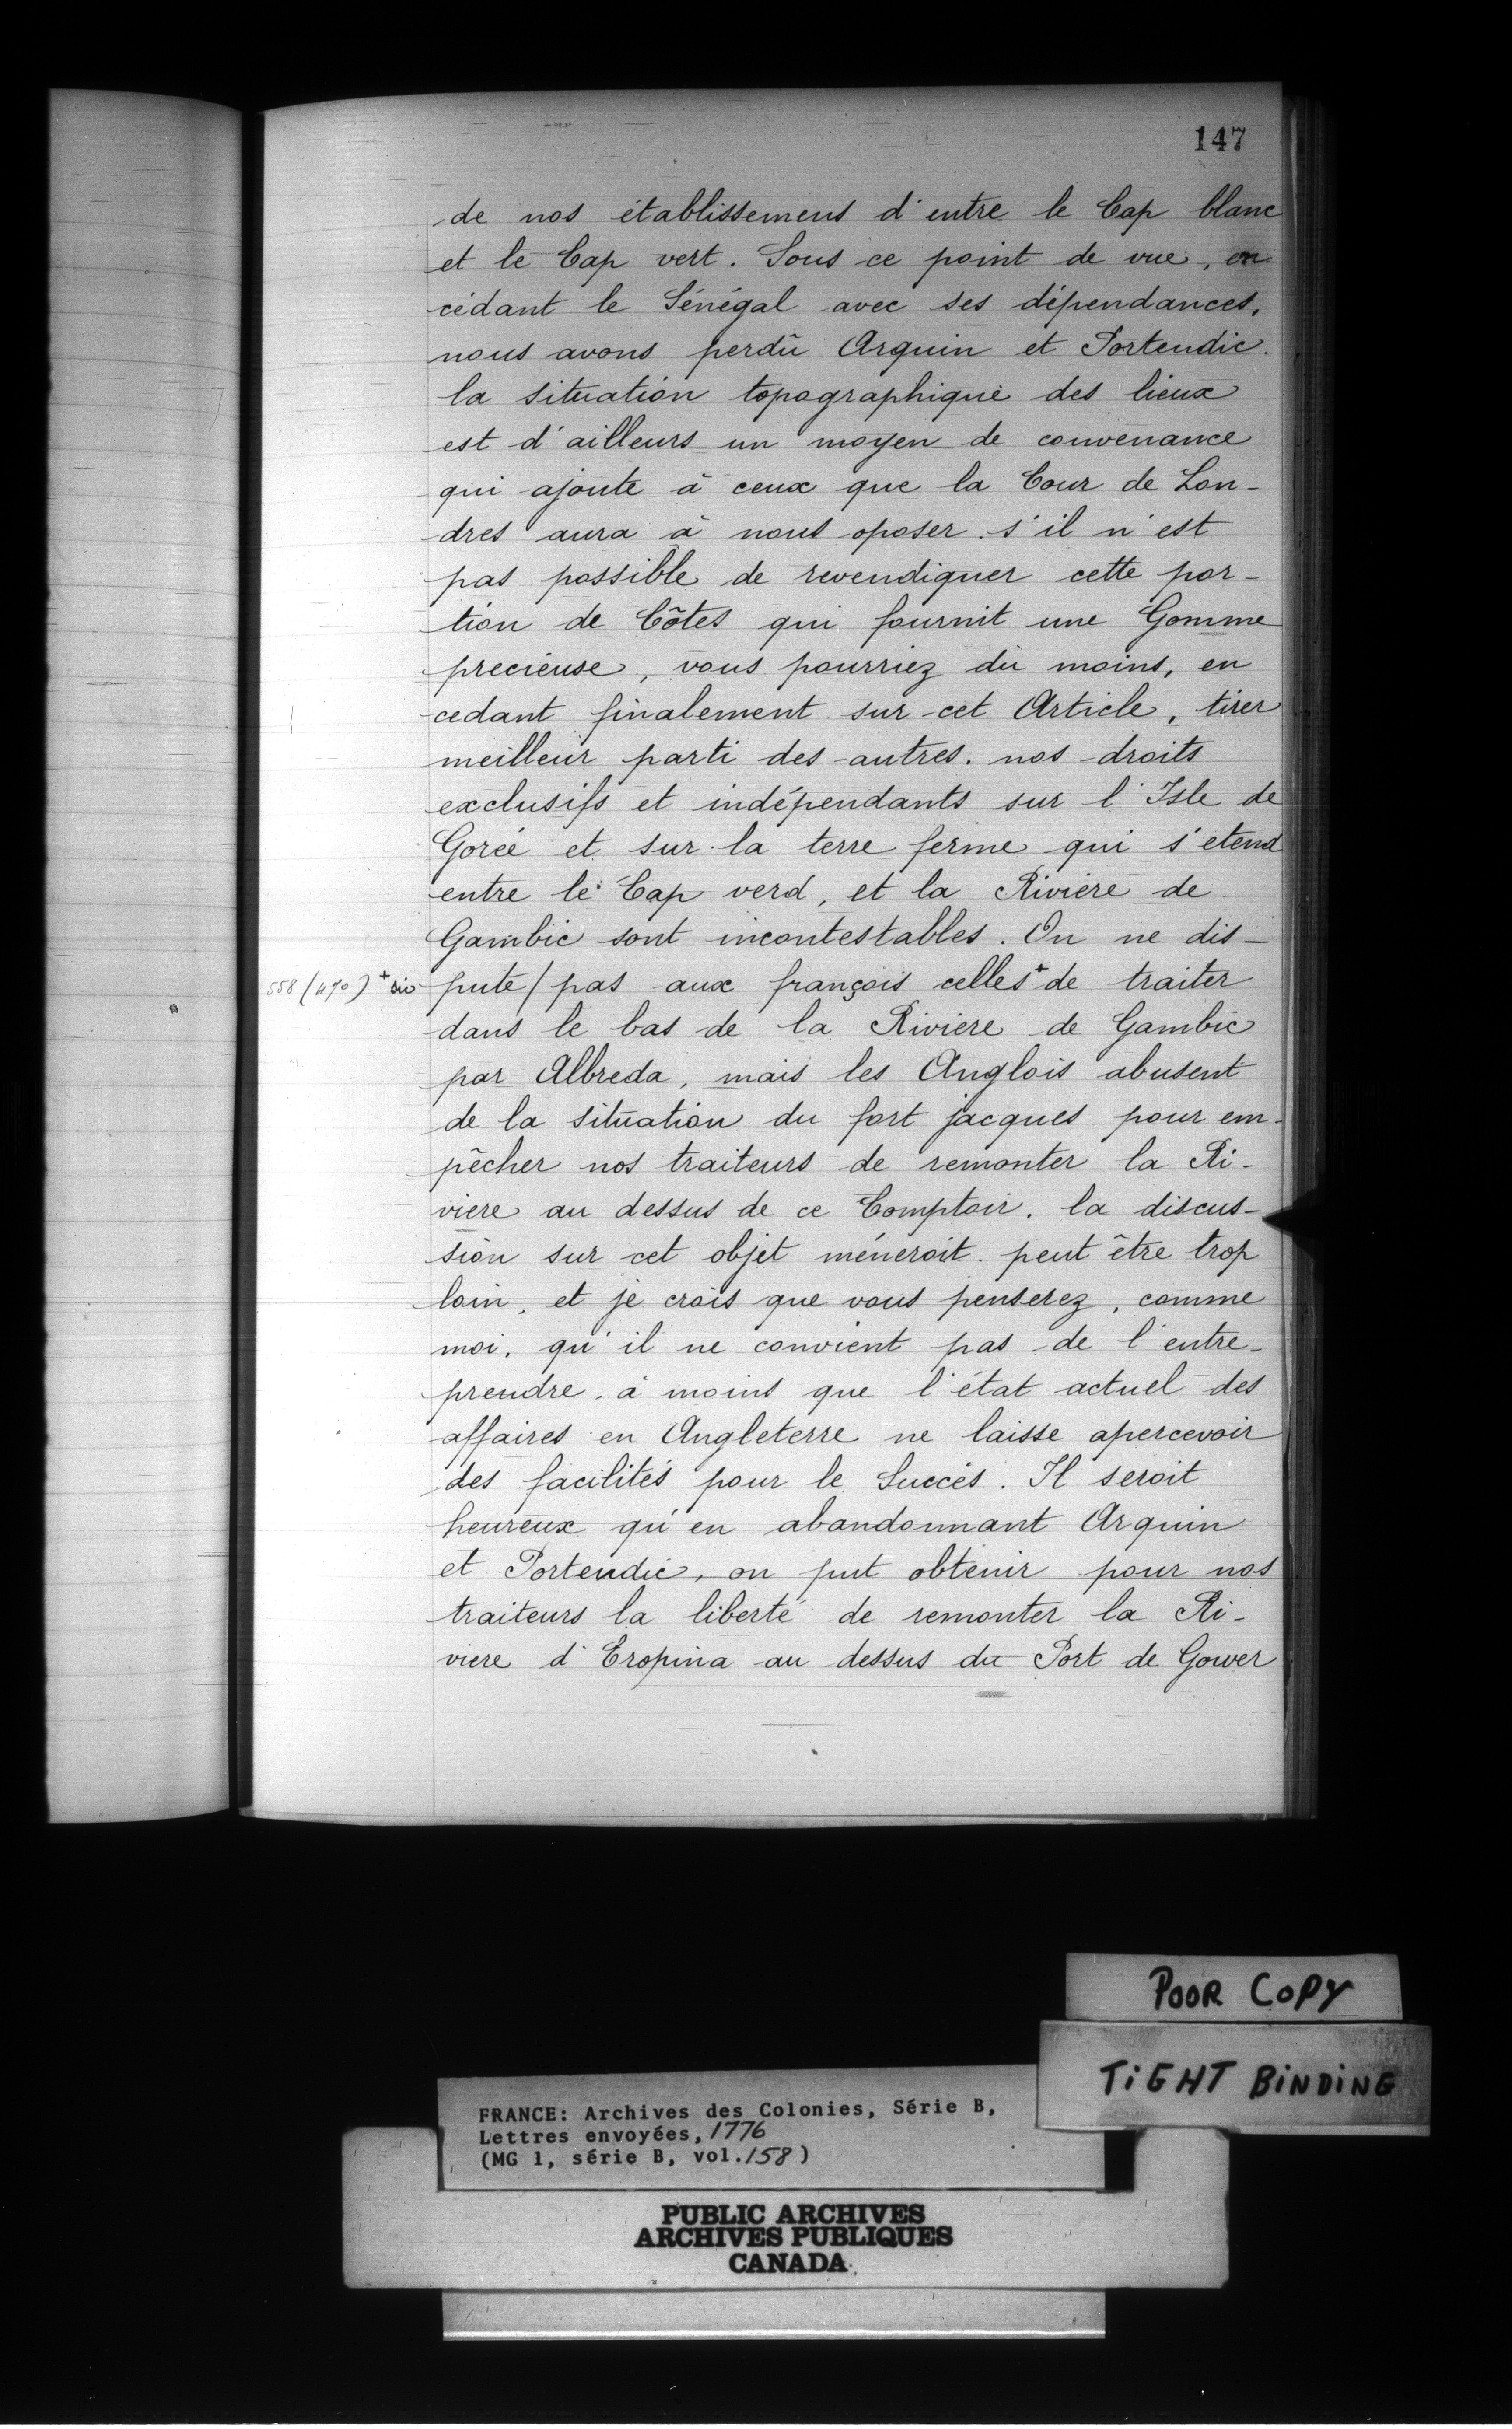 147
de nos établissemens d'entre le Cap blanc
et le Cap vert. Sous ce point de vue, en
cédant le Sénégal avec ses dépendances,
nous avons perdû Arguin et Portendic.
la situation topographique des lieux
est d'ailleurs un moyen de convenance
qui ajoute à ceux que la Cour de Lon-
dres aura à nous oposer. s'il n'est
pas possible de revendiquer cette por-
tion de Côtes qui fournit une Gomme
precieuse, vous pourriez du moins, en
cedant finalement sur cet Article, tirer
meilleur parti des autres. nos droits
exclusifs et indépendants sur l'Isle de
Gorée et sur la terre ferme qui s'etend
entre le Cap verd, et la Riviére de
Gambie sont incontestables. On ne dis-
558 (470) + sic pute/pas aux françois celles + de traiter
dans le bas de la Riviere de Gambie
par Albreda, mais les Anglois abusent
de la situation du fort jacques pour em-
pêcher nos traiteurs de remonter la Ri-
viere au dessus de ce Comptoir. la discus-
sion sur cet objet méneroit peut être trop
loin, et je crois que vous penserez, comme
moi, qu'il ne convient pas de l'entre-
prendre, à moins que l'état actuel des
affaires en Angleterre ne laisse apercevoir
des facilités pour le Succés. Il seroit
heureux qu'en abandonnant Arguin
et Portendic, on put obtenir pour nos
traiteurs la liberté de remonter la Ri-
viere d'Eropina au dessus du Port de Gower
POOR COPY
TIGHT BINDING
FRANCE: Archives des Colonies, Série B,
Lettres envoyées, 1776
(MG 1, série B, vol. 158)
PUBLIC ARCHIVES
ARCHIVES PUBLIQUES
CANADA